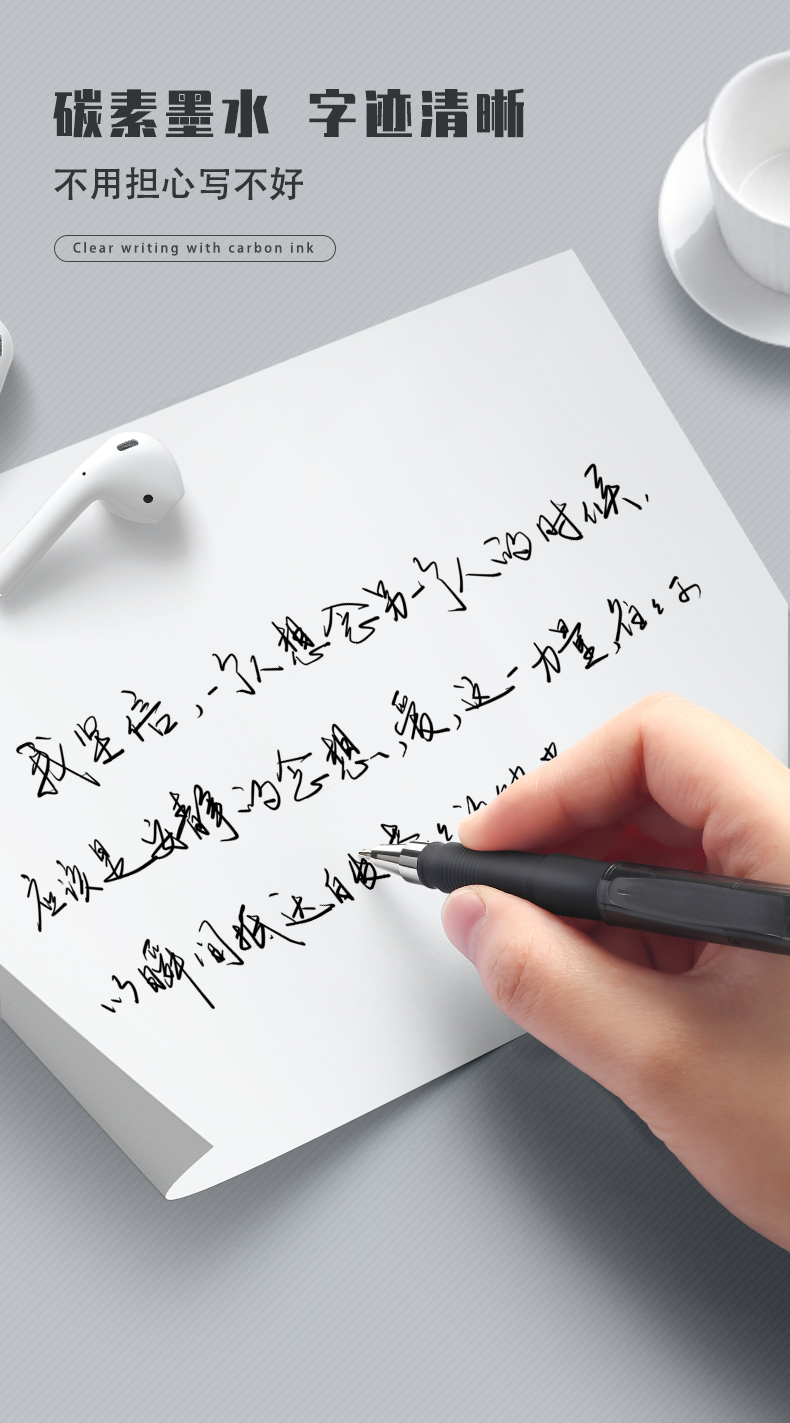 碳素墨水 字迹清晰
不用担心写不好
Clear writing with carbon ink
我坚信，一个人想念另一个人的时候，
应该是安静的念想，爱，这一力量，往往可
以瞬间抵达自